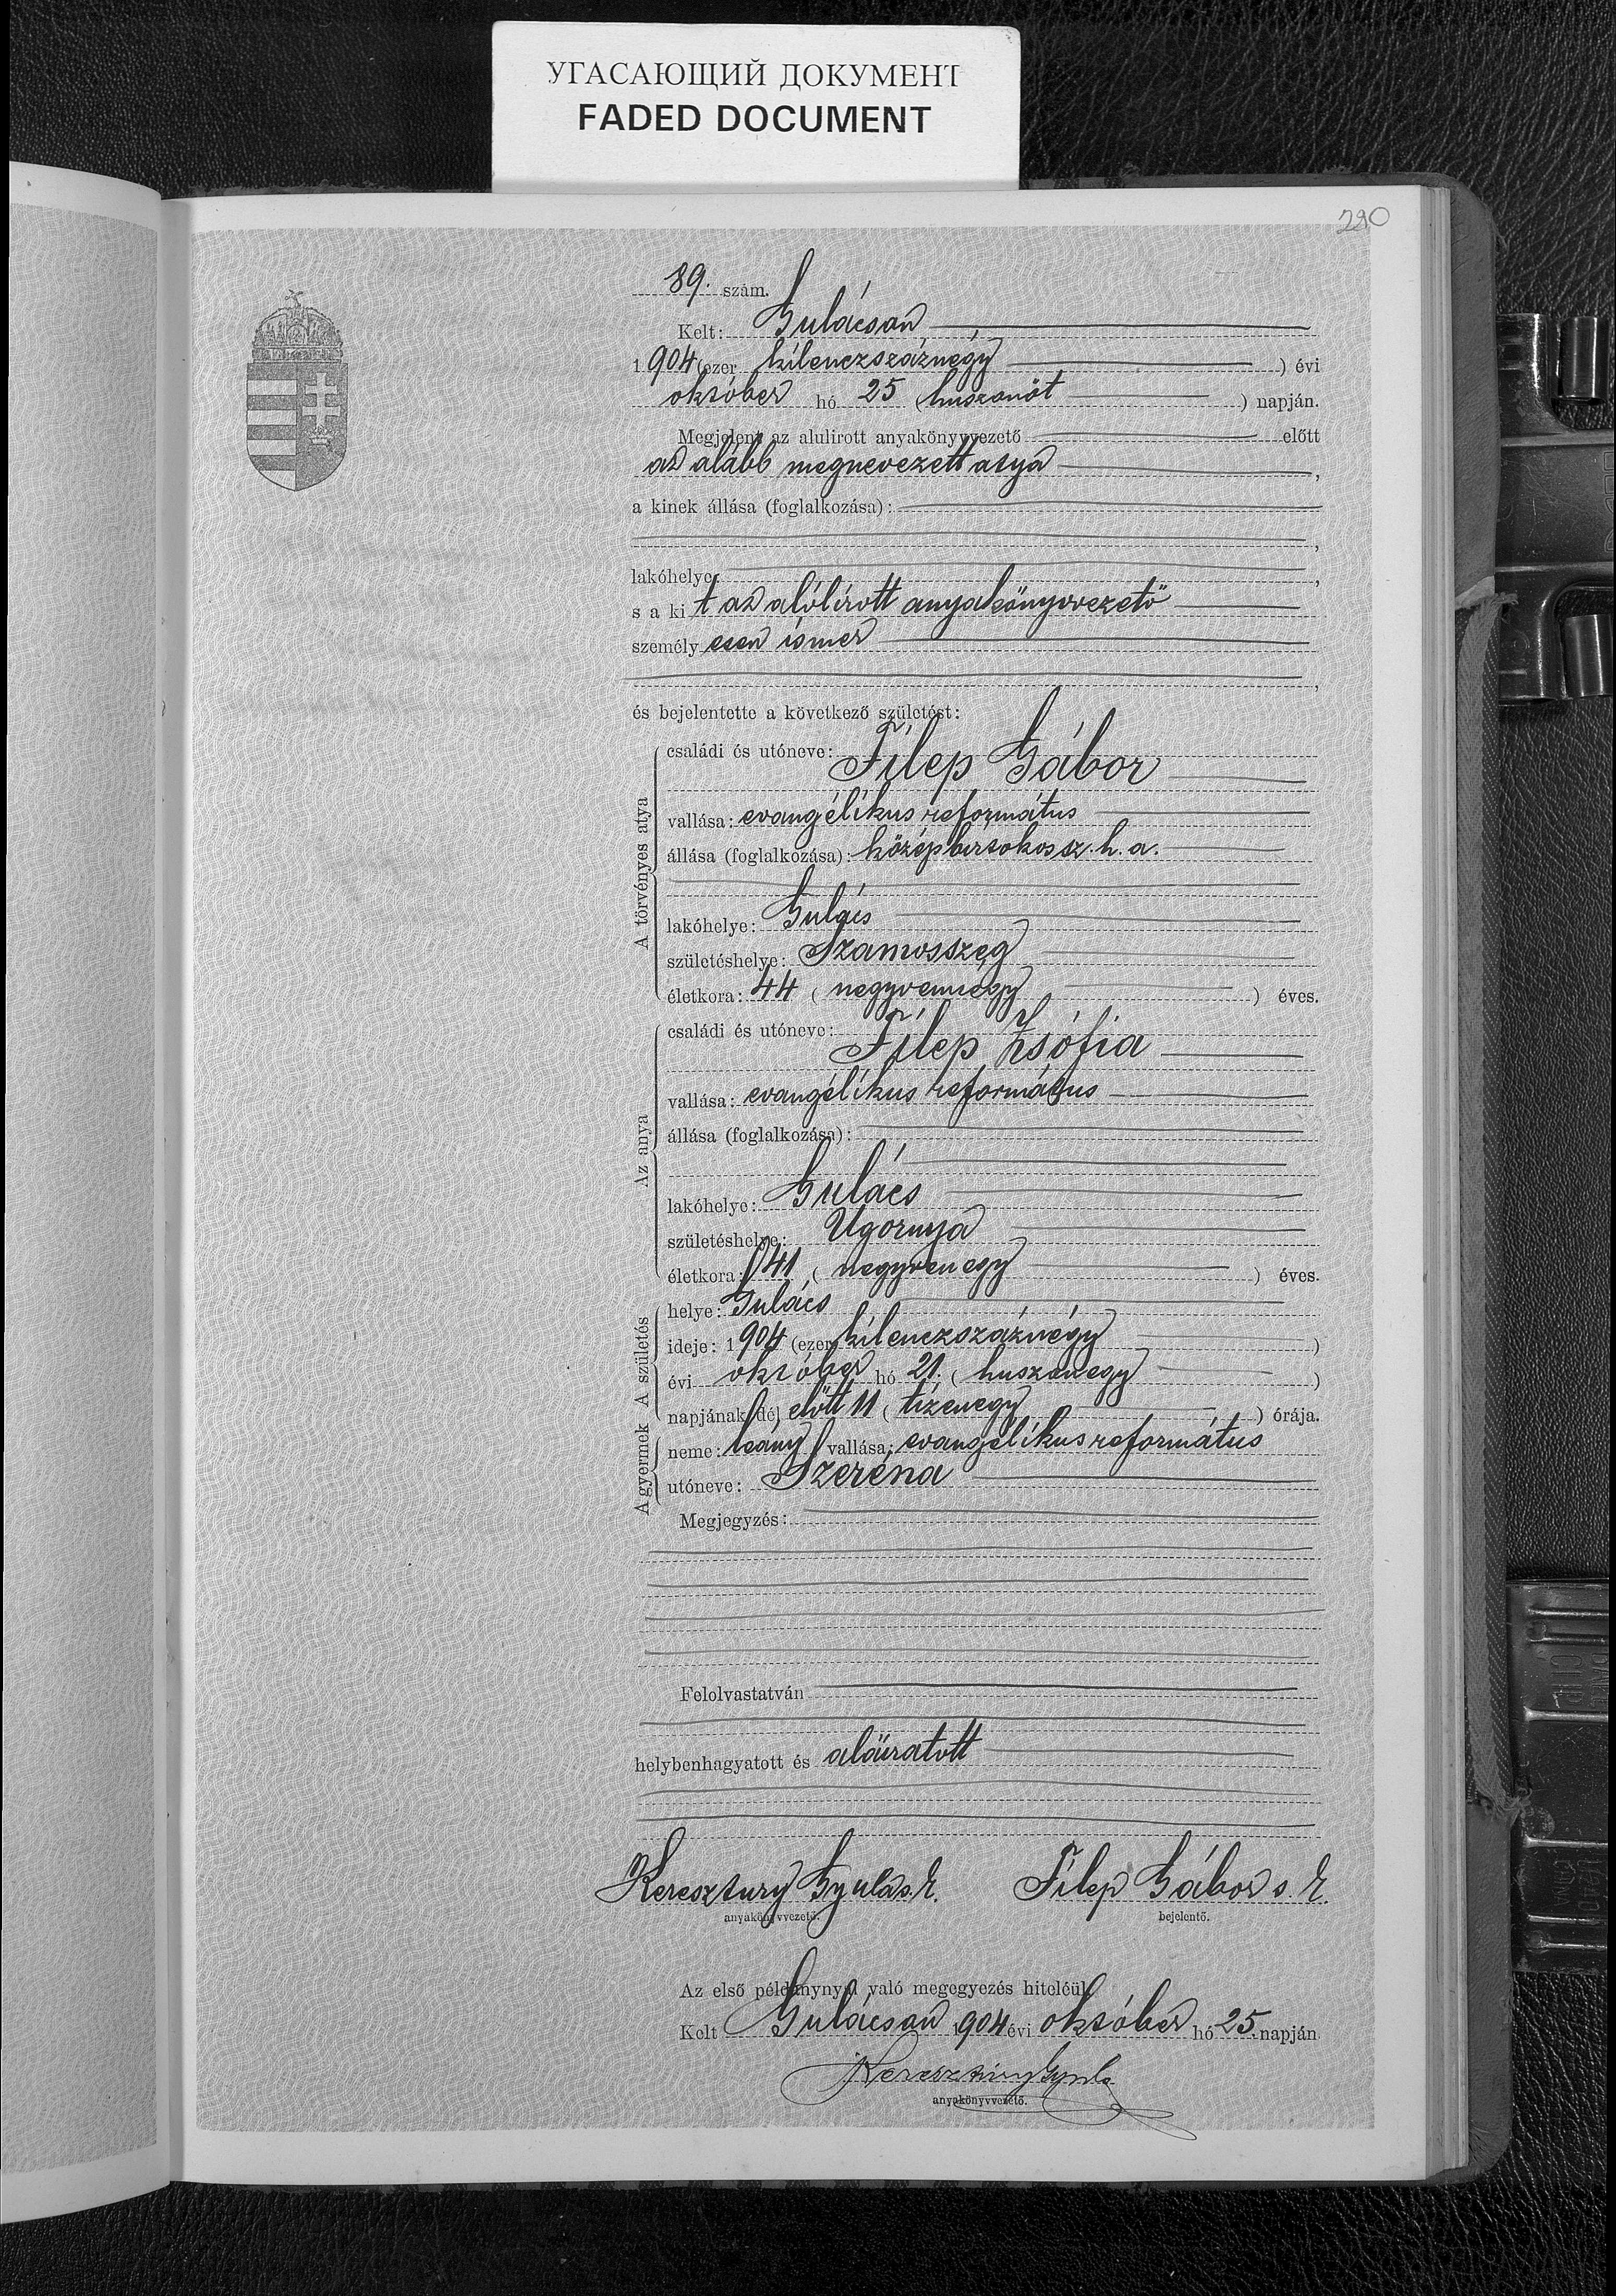 УГАСАЮЩИЙ ДОКУМЕНТ
FADED DOCUMENT
89. szám.
Kelt: Gulácson
1904 (ezer kilenczszáznégy ) évi
október hó 25 (huszonöt ) napján.
Megjelent az alulirott anyakönyvvezető előtt
az alább megnevezett atya ,
a kinek állása (foglalkozása):
,
lakóhelye: ,
s a kit az alólírott anyakönyvvezető
személyesen ismer
,
és bejelentette a következő születést:
A törvényes atya
családi és utóneve: Filep Gábor
vallása: evangélikus református
állása (foglalkozása): középbirtokos sz. h. a.
lakóhelye: Gulács
születéshelye: Szamosszeg
életkora: 44 ( negyvennégy ) éves.
Az anya
családi és utóneve: Filep Zsófia
vallása: evangélikus református
állása (foglalkozása):
lakóhelye: Gulács
születéshelye: Ugornya
életkora: 41 ( negyvenegy ) éves.
A születés
helye: Gulács
ideje: 1904 (ezer kilenczszáznégy )
évi október hó 21. ( huszonegy )
napjának dél előtt 11 ( tizenegy ) órája.
A gyermek
neme: leány vallása: evangélikus református
utóneve: Szeréna
Megjegyzés:
Felolvastatván
helybenhagyatott és aláiratott
Keresztury Gyula s. k. Filep Gábor s. k.
anyakönyvvezető. bejelentő.
Az első példánynyal való megegyezés hiteléül
Kelt Gulácson 1904 évi október hó 25. napján
Keresztury Gyula
anyakönyvvezető.